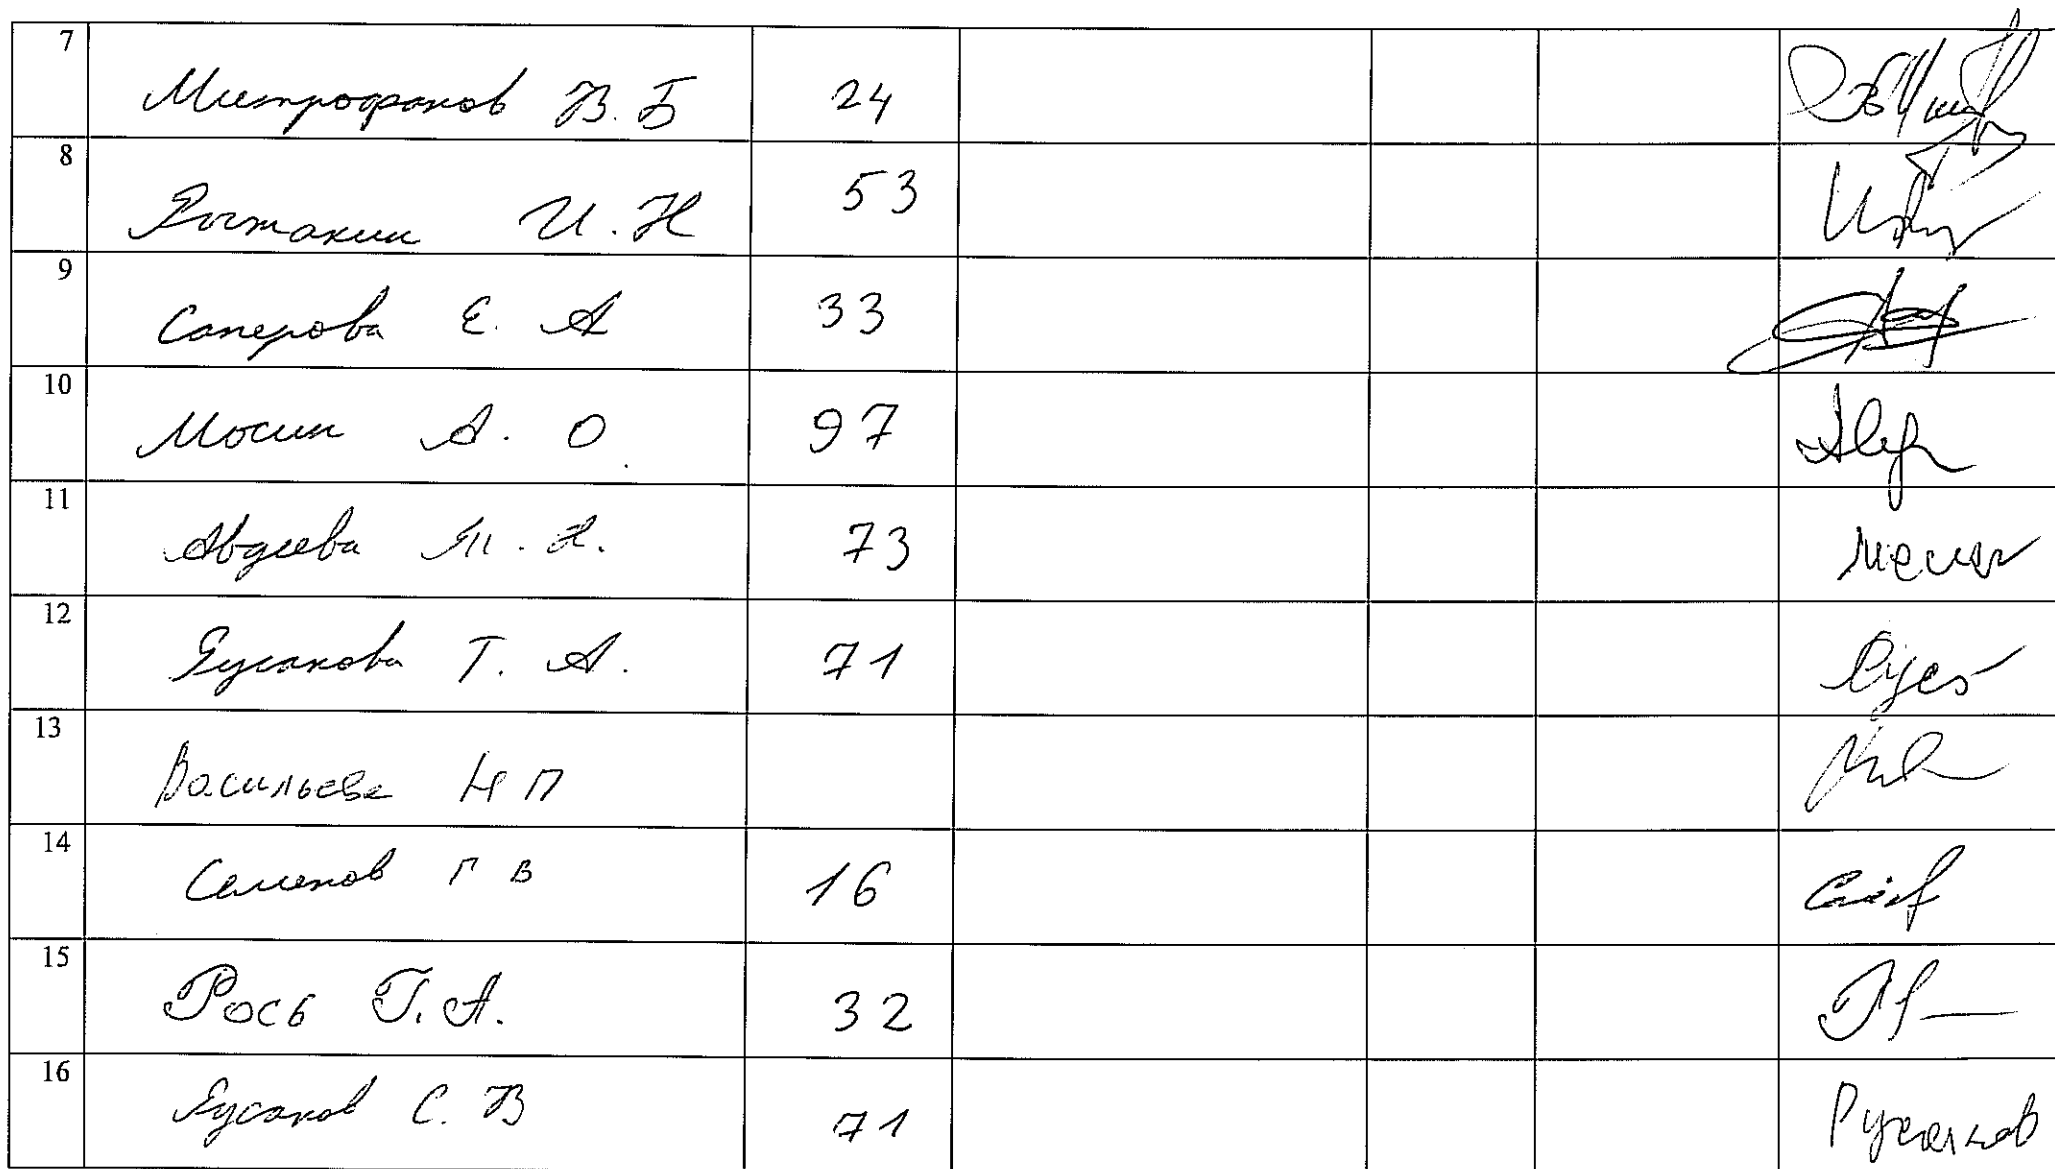 7 Митрофанов В. Б 24
8 И. Н 53
9 Саперова Е. А 33
10 Мосин А. О. 97
11 Авдеева М. Н. 73
12 Русакова Т. А. 71
13 Васильева Н П
14 Семенов Г В 16
15 Рось Г. А. 32
16 Русаков С. В 71 Русаков